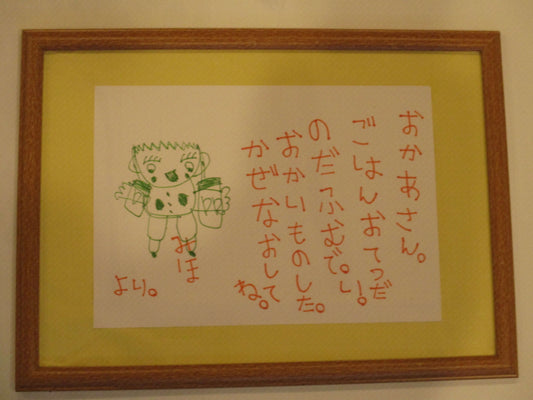 おかあさん。
ごはんおてつだ
い!。
のだふむで。
おかいものした。
かぜなおして
ね。
みほ
より。